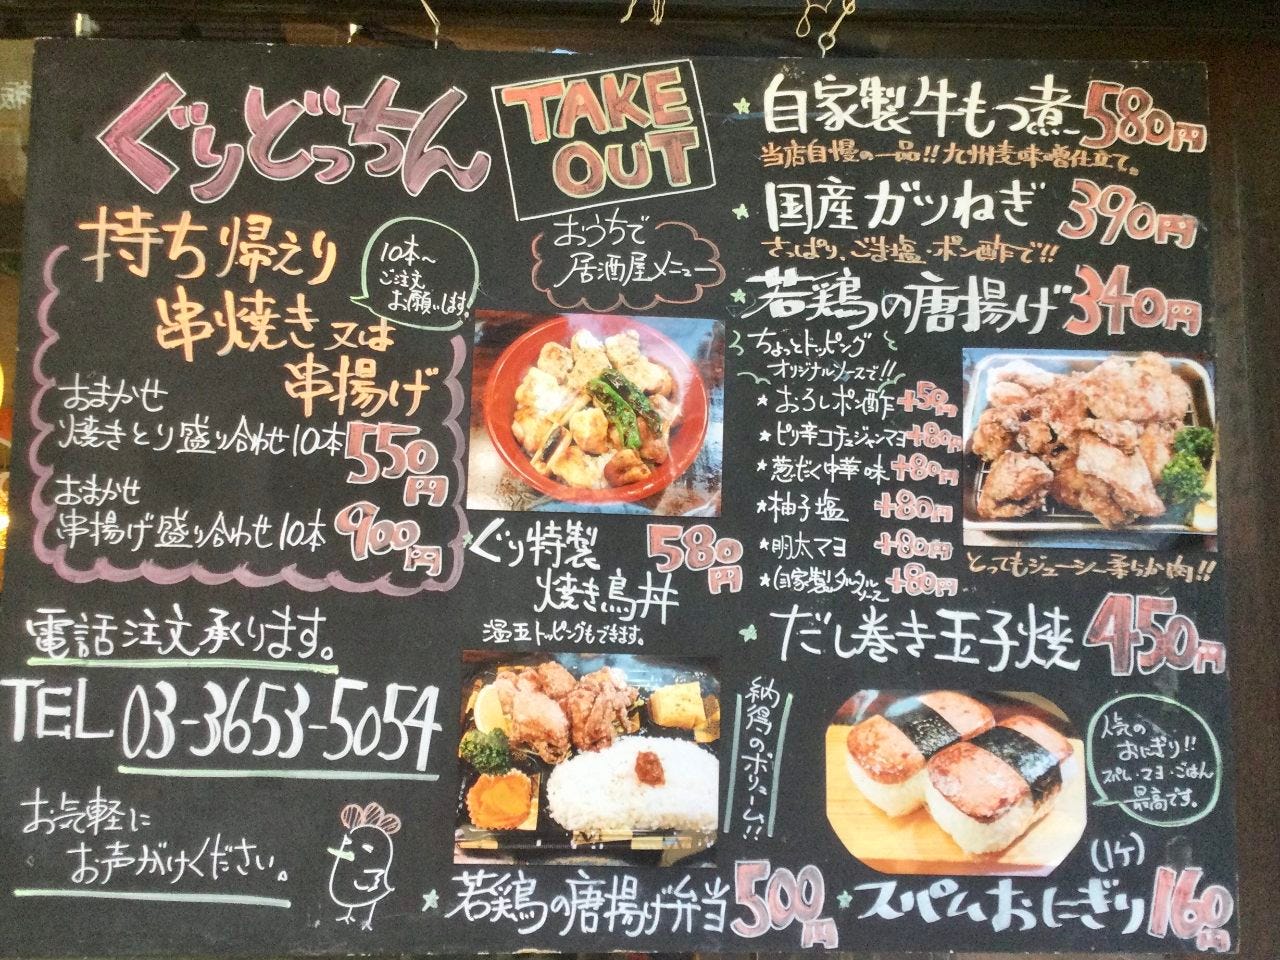 ぐりどっちん
TAKE
OUT
おうちで
居酒屋メニュー
持ち帰えり
串焼き又は
串揚げ
10本〜
ご注文
お願いします!
おまかせ
焼きとり盛り合わせ10本 550円
おまかせ
串揚げ盛り合わせ10本 900円
電話注文承ります。
TEL 03-3653-5054
お気軽に
お声がけください。
ぐり特製
焼き鳥丼 580円
温玉トッピングもできます。
納得のボリューム!!
若鶏の唐揚げ弁当 500円
自家製牛もつ煮 580円
当店自慢の一品!!九州麦味噌仕立て。
国産ガツねぎ 390円
さっぱり、ごま塩・ポン酢で!!
若鶏の唐揚げ 340円
ちょっとトッピングと
オリジナルソースで!!
おろしポン酢 +50円
ピリ辛コチュジャンマヨ +80円
葱だく中華味 +80円
柚子塩 +80円
明太マヨ +80円
自家製タルタル
ソース +80円
とってもジューシー柔らか肉!!
だし巻き玉子焼 450円
人気の
おにぎり!!
スパム・マヨ・ごはん
最高です。
(1ケ)
スパムおにぎり 160円